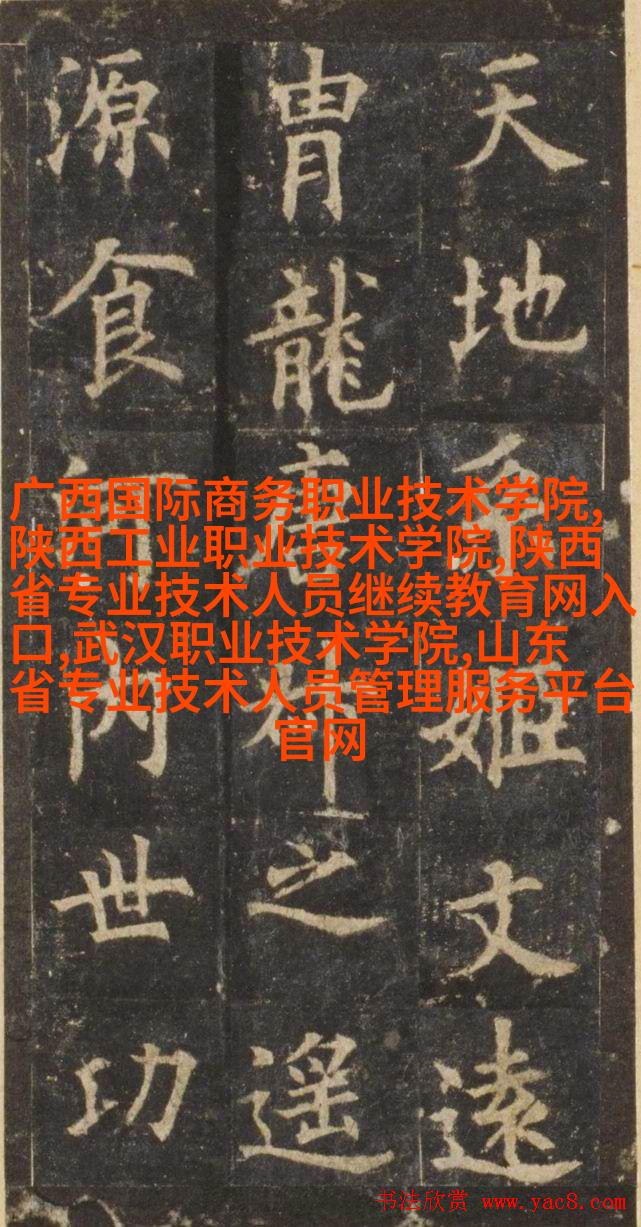 天地系姬文遠
胄龍高之遥
源食内世功
广西国际商务职业技术学院,
陕西工业职业技术学院,陕西
省专业技术人员继续教育网入
口,武汉职业技术学院,山东
省专业技术人员管理服务平台
官网
书法欣赏 www.yac8.com